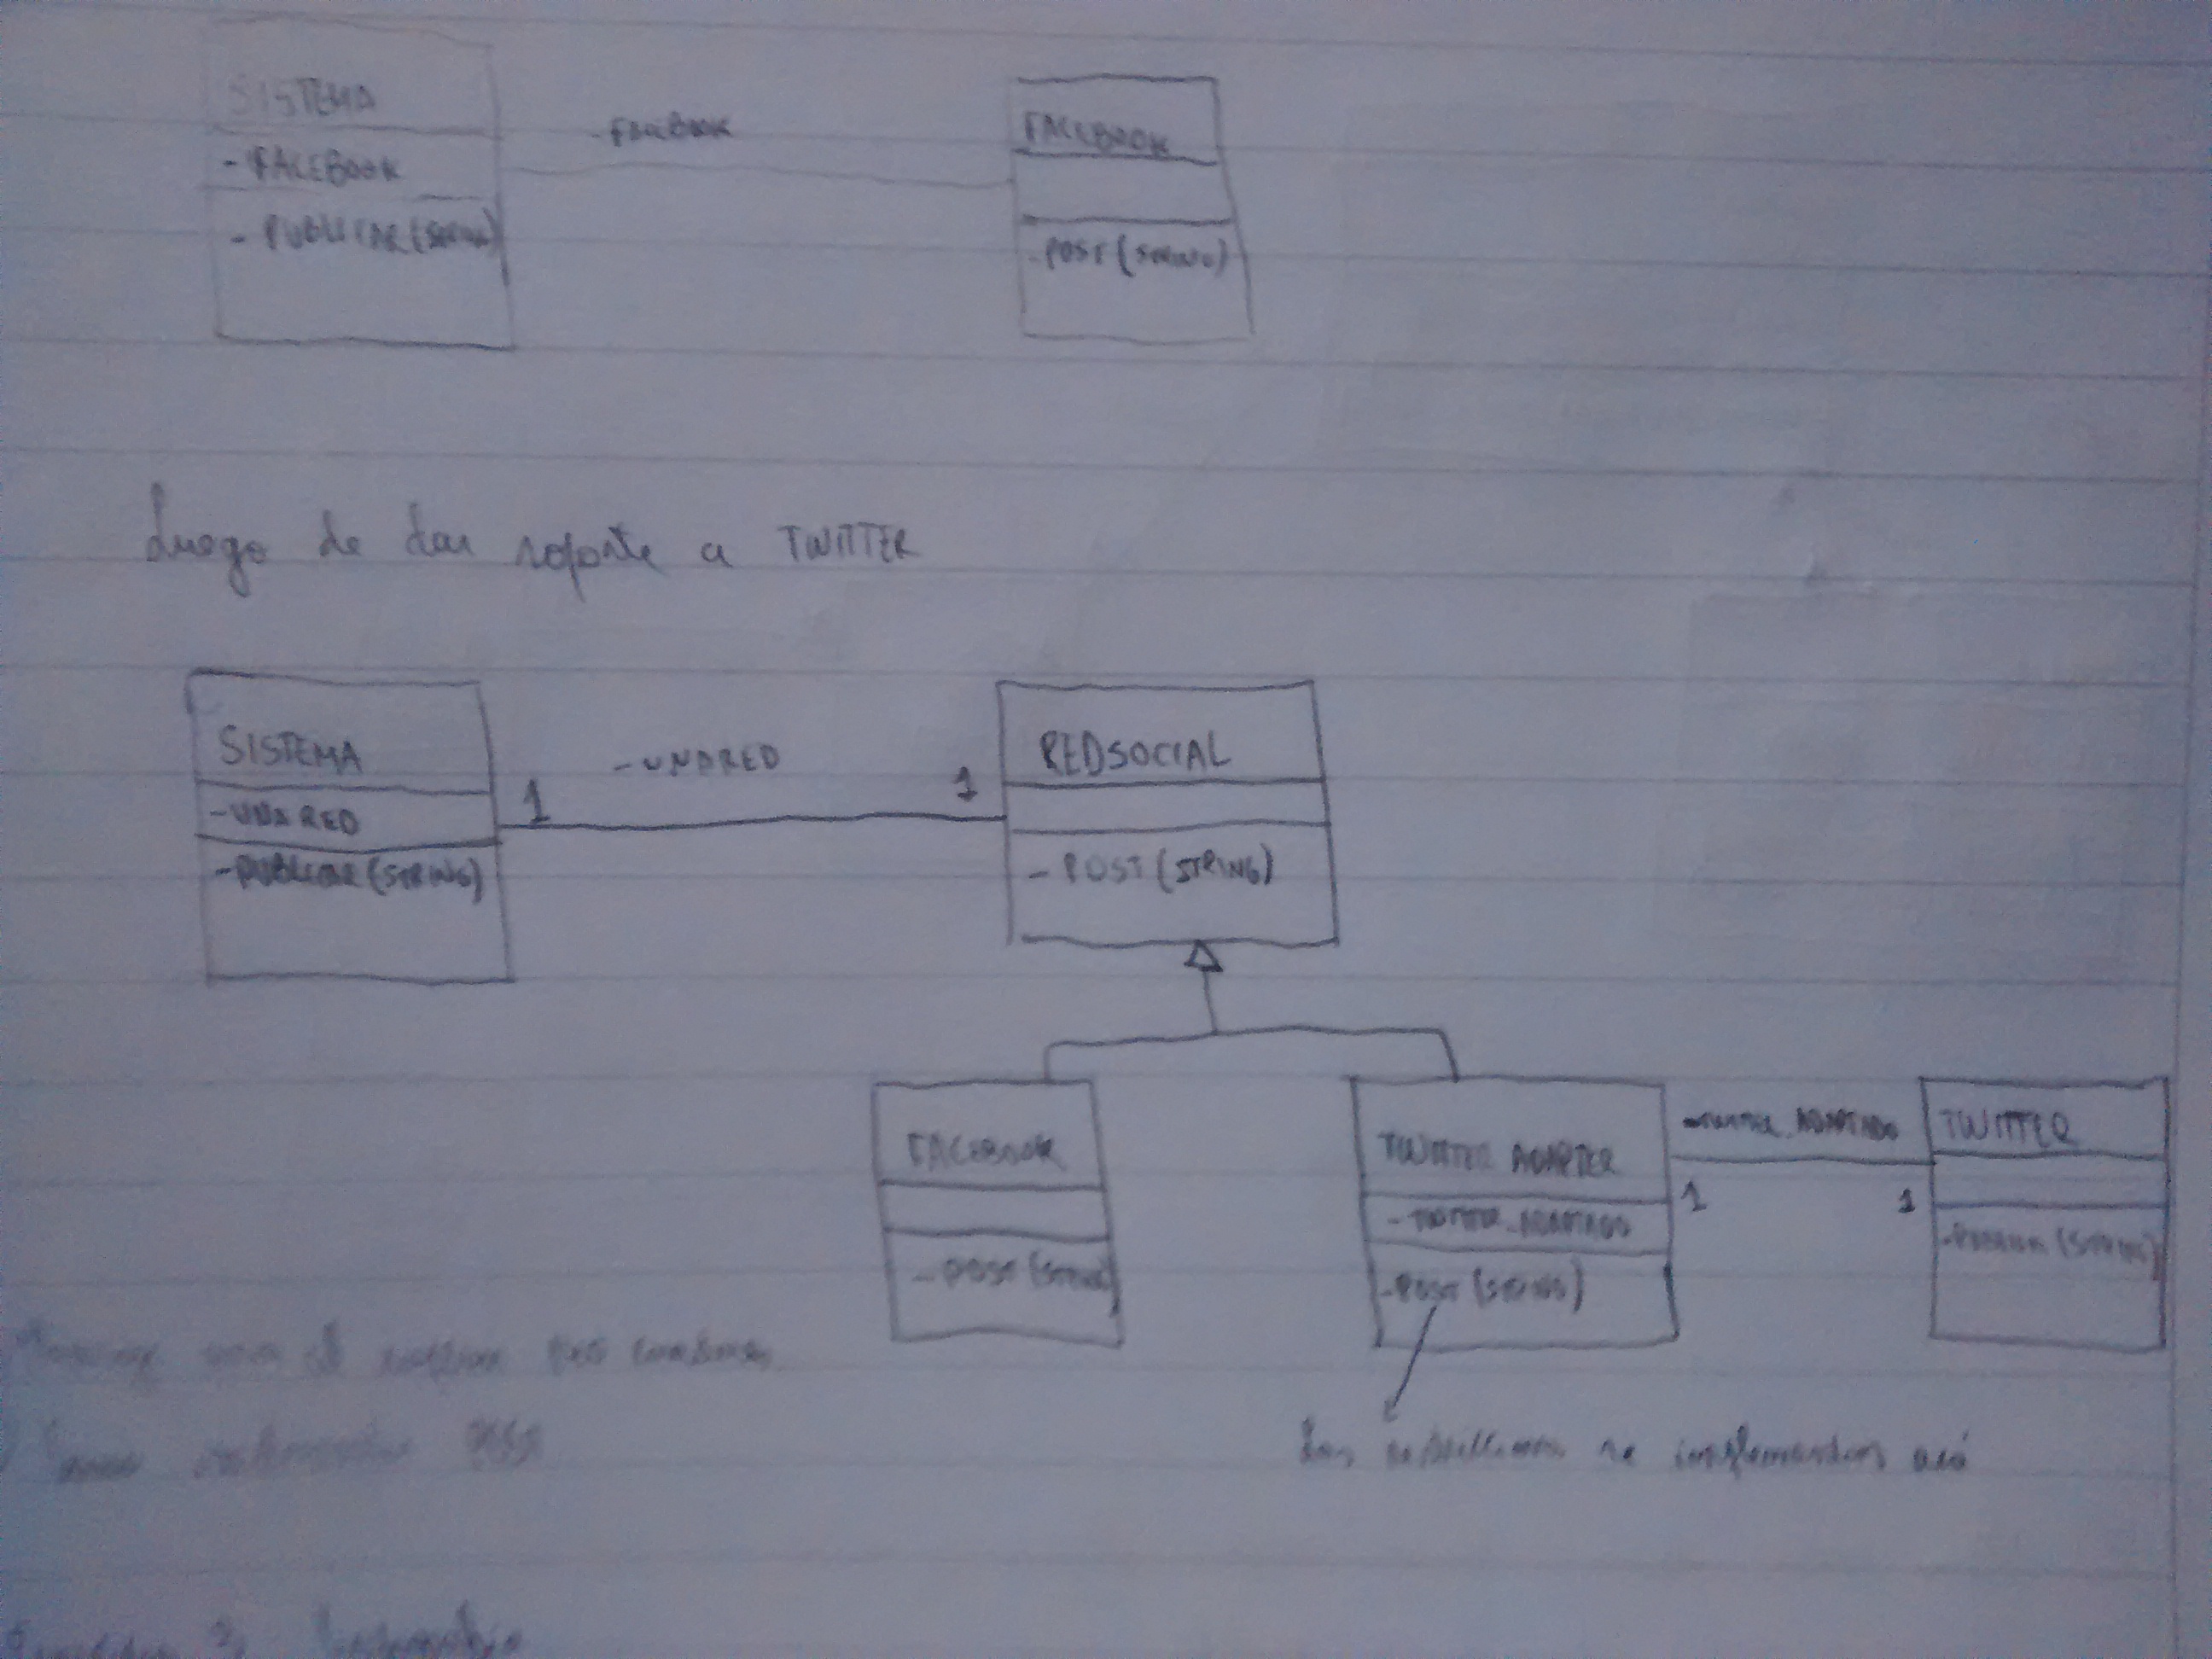 SISTEMA
- FACEBOOK
- PUBLICAR (STRING)
- FACEBOOK
FACEBOOK
- POST (STRING)
Luego de dar soporte a TWITTER
SISTEMA
- UNARED
- PUBLICAR (STRING)
1
- UNARED
1
REDSOCIAL
- POST (STRING)
FACEBOOK
- POST (STRING)
TWITTER ADAPTER
- TWITTER_ADAPTADO
- POST (STRING)
- TWITTER_ADAPTADO
1
1
TWITTER
(STRING)
se implementan acá